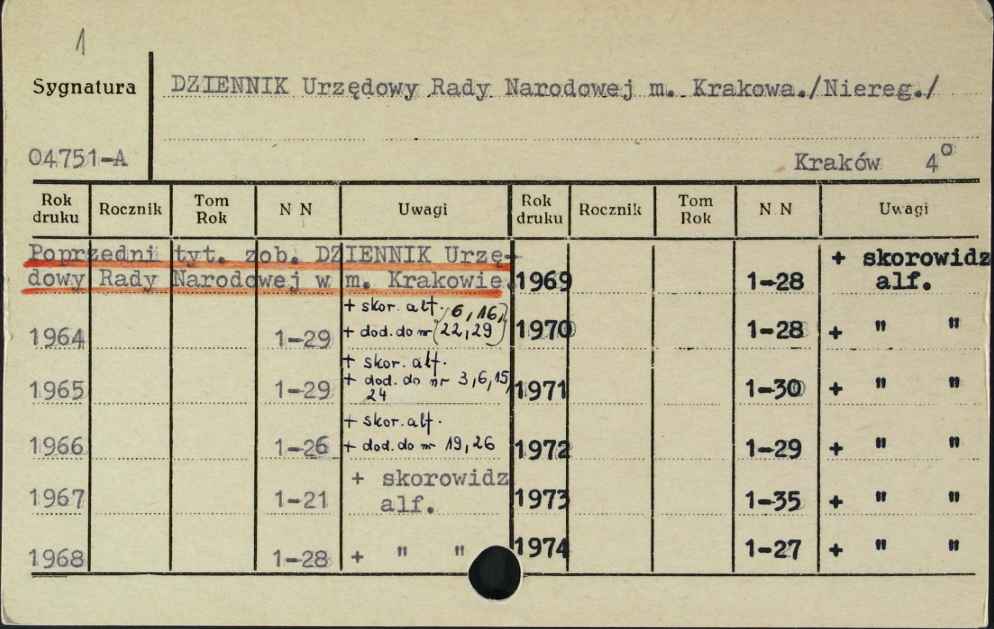 1
Sygnatura DZIENNIK Urzędowy Rady Narodowej m. Krakowa./Niereg./
04751-A Kraków 4°
Rok druku Rocznik Tom Rok N N Uwagi Rok druku Rocznik Tom Rok N N Uwagi
Poprzedni tyt. zob. DZIENNIK Urzę-
dowy Rady Narodowej w m. Krakowie.
1964 1-29 + skor. alf.
+ dod. do nr (6, 16, 22, 29)
1965 1-29 + skor. alf.
+ dod. do nr 3, 6, 15,
24
1966 1-26 + skor. alf.
+ dod. do nr 19, 26
1967 1-21 + skorowidz
alf.
1968 1-28 + " "
1969 1-28 + skorowidz
alf.
1970 1-28 + " "
1971 1-30 + " "
1972 1-29 + " "
1973 1-35 + " "
1974 1-27 + " "